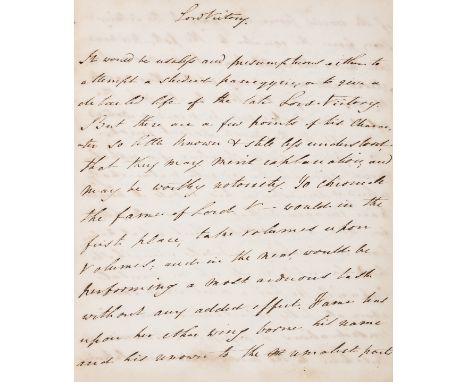 Lord Victory.
It would be useless and presumptuous either to
attempt a studied panegyric, or to give a
detailed life of the late Lord Victory.
But there are a few points of his Charac
-ter so little known & still less understood
that they may merit explanation, and
may be worthy notoriety. To chronicle
the fame of Lord V — would in the
first place, take volumes upon
volumes, and in the next, would be
performing a most arduous task
without any added effect. Fame has
upon her ether wing borne his name
and his renown to the remotest part